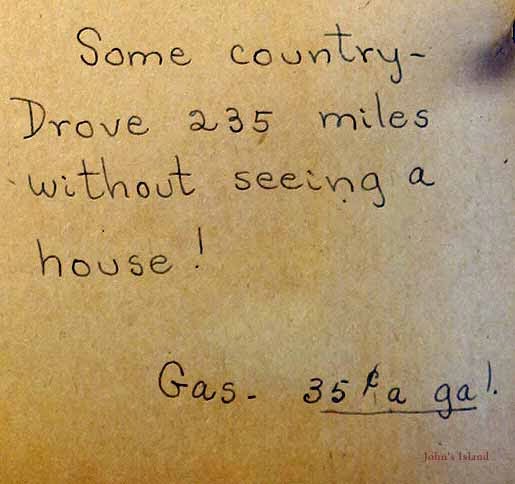 Some country-
Drove 235 miles
without seeing a
house!
Gas- 35¢ a gal.
John's Island